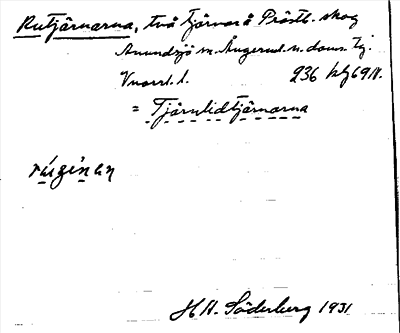 Rutjärnarna, två tjärnar å Prästb. skog
Anundsjö sn. Ångerml. n. doms. tg.
Vnorrl. l. 236
= Tjärnlidtjärnarna
H. Söderberg 1931